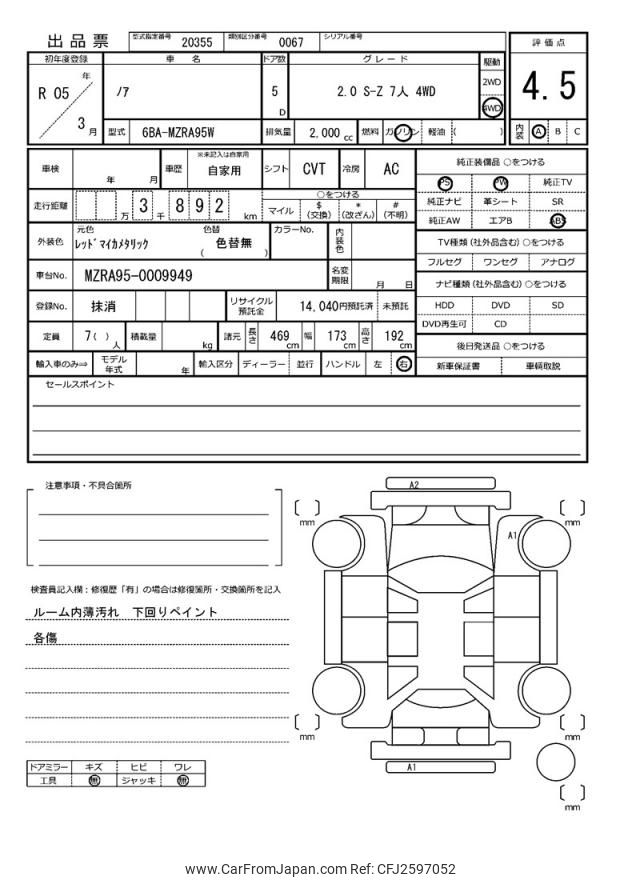 出品票 型式指定番号 20355 類別区分番号 0067 シリアル番号
評価点
4.5
内装 A B C
初年度登録 車名 ドア数 グレード 駆動
R 05 年 3 月
ノア
5 D
2.0 S-Z 7人 4WD
2WD
4WD
型式 6BA-MZRA95W 排気量 2,000 cc 燃料 ガソリン 軽油 ( )
車検 年 月 車歴 ※未記入は自家用 自家用 シフト CVT 冷房 AC
走行距離 万 3 千 8 9 2 km
○をつける
マイル $(交換) *(改ざん) #(不明)
外装色 元色 レッドマイカメタリック 色替 ( 色替無 ) カラーNo. 内装色
車台No. MZRA95-0009949 名変期限 月 日
登録No. 抹消 リサイクル預託金 14,040円預託済 未預託
定員 7( ) 人 積載量 kg 諸元 長さ 469 cm 幅 173 cm 高さ 192 cm
輸入車のみ⇒ モデル年式 年 輸入区分 ディーラー 並行 ハンドル 左 右
純正装備品 ○をつける
PS PW 純正TV
純正ナビ 革シート SR
純正AW エアB ABS
TV種類 (社外品含む) ○をつける
フルセグ ワンセグ アナログ
ナビ種類 (社外品含む) ○をつける
HDD DVD SD
DVD再生可 CD
後日発送品 ○をつける
新車保証書 車輌取説
セールスポイント
注意事項・不具合箇所
検査員記入欄：修復歴「有」の場合は修復箇所・交換箇所を記入
ルーム内薄汚れ 下回りペイント
各傷
ドアミラー キズ ヒビ ワレ
工具 無 ジャッキ 無
A2
A1
A1
[ ] mm
[ ] mm
[ ] mm
[ ] mm
[ ] mm
www.CarFromJapan.com Ref: CFJ2597052